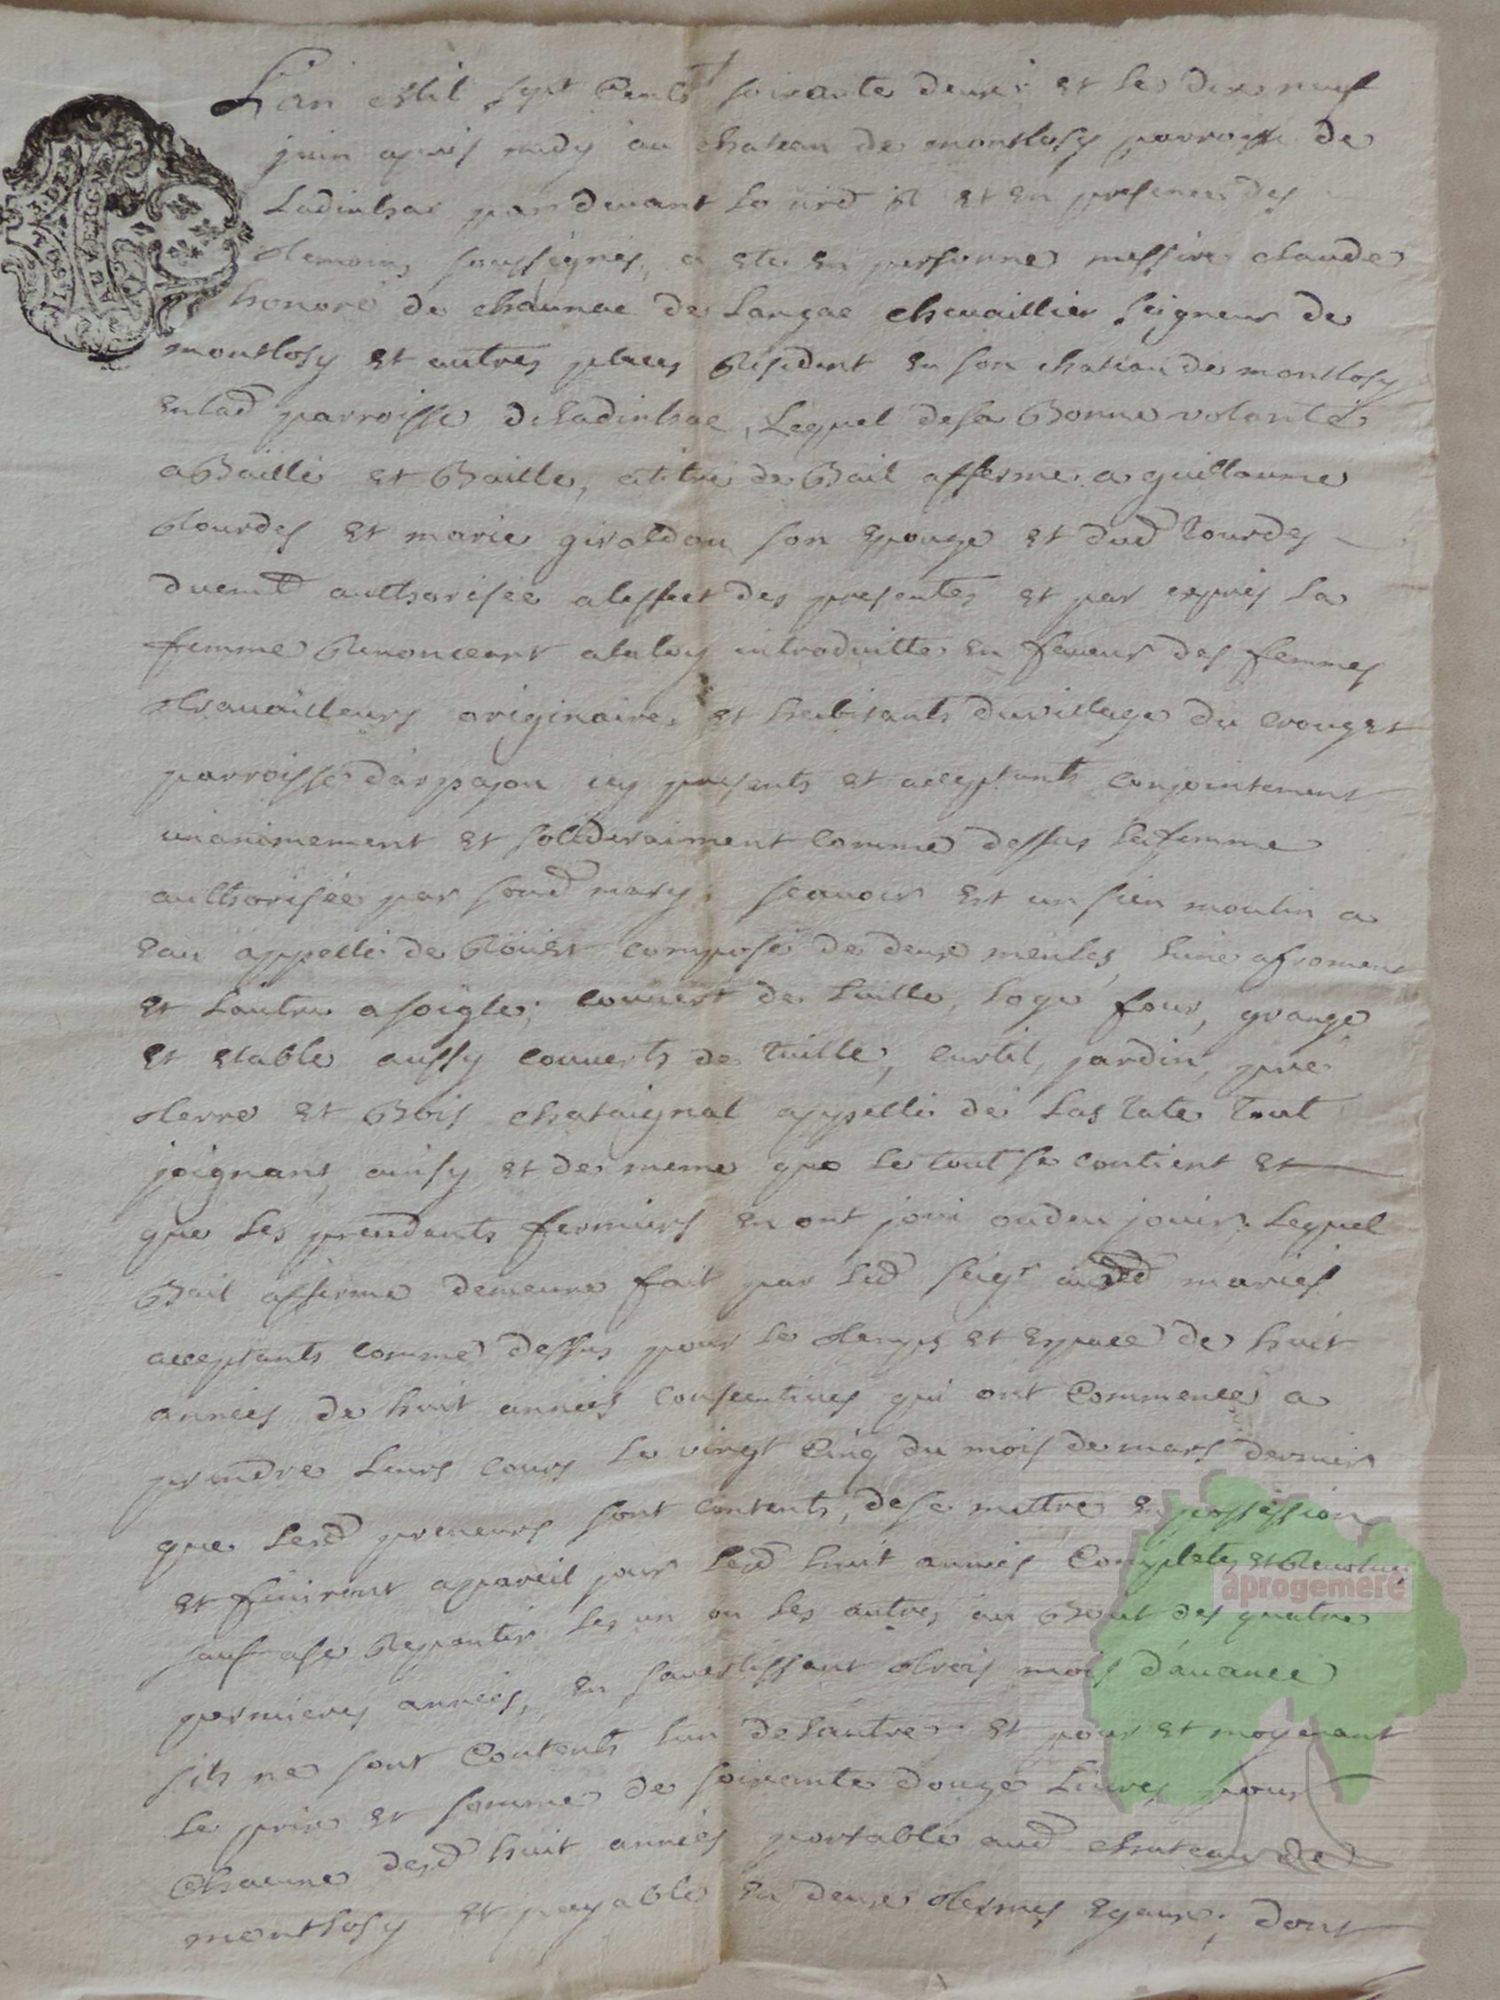 L'an mil sept Cents soixante deux; et le dix neuf
juin apres midy au chateau de montlosy parroisse de
Ladinhac par devant le nre Rl et en presences des
temoins soussignés, a eté en personne messire claude
honoré de chaunac de Lanzac chevaillier seigneur de
montlosy et autres places Résident en son chateau de montlosy
en lad parroisse de Ladinhac, Lequel de sa Bonne volonté
a Baillé et Baille, atitre de Bail afferme a guillaume
Lourdes et marie giraldou son epouze et dud Lourdes
duemt authorisée aleffect des presentes et par exprés la
femme Renonceant alaloy introduitte en faveur des femmes
travailleurs originaires et habitants du village du crouzet
parroisse d'arpajon icy presents et acceptants conjointement
unanimement et solideraiment comme dessus la femme
authorisée par sond mary; scavoir est un sien moulin a
eau appellé de Roüet composé de deux meules, lune afroment
et Lautre asoigle; couvert de tuille, loge four, grange
et etable aussy couverts de tuille, curtil, jardin, pré
terre et Bois chataignal appellé de Las tate tout
joignans, ainsy et de meme que le tout se contient et
que les prendants fermiers en ont joui ou deu jouir; Lequel
Bail afferme demeure fait par led seigr auxd mariés
acceptants comme dessus pour le temps et espace de huit
années de huit années consecutives qui ont commencé a
prendre leurs cours le vingt Cinq du mois de mars dernier
que lesd preneurs sont contents, de se mettre en possession
et finiront apareil jour lesd huit années Completes et Revolues
sauf ase Repartir les un ou les autres au Bout des quatre
permieres années, en savertissant trois mois d'avance
sils ne sont Contents lun de lautre; et pour et moyenant
Le prix et somme de soixante douze Livres pour
Chacune desd huit années portable aud chateau de
montlosy et payable en deux termes egaux; dont
aprogemere